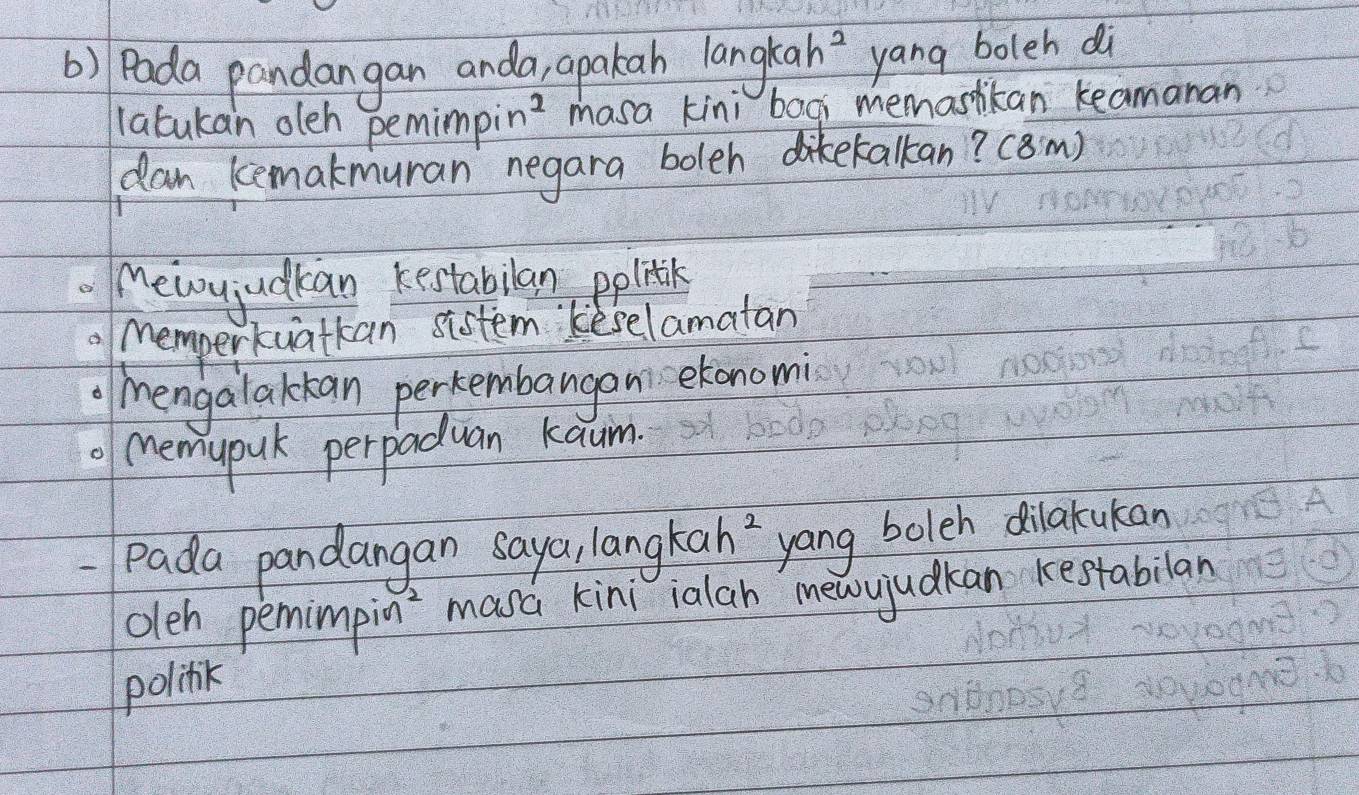 b) Pada pandangan anda, apakah langkah² yang boleh di
lakukan oleh pemimpin² masa kini bagi memastikan keamanan
dan kemakmuran negara boleh dikekalkan? (8m)
• Mewujudkan kestabilan politik
• Memperkuatkan sistem keselamatan
• Mengalakkan perkembangan ekonomi
• Memupuk perpaduan kaum.
- Pada pandangan saya, langkah² yang boleh dilakukan
oleh pemimpin² masa kini ialah mewujudkan kestabilan
politik